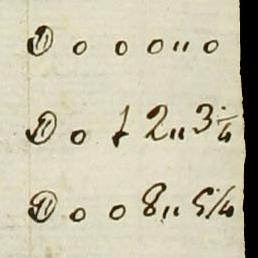 D o o o " o
D o 1 2 " 3 1/4
D o o 8 " 5 1/4